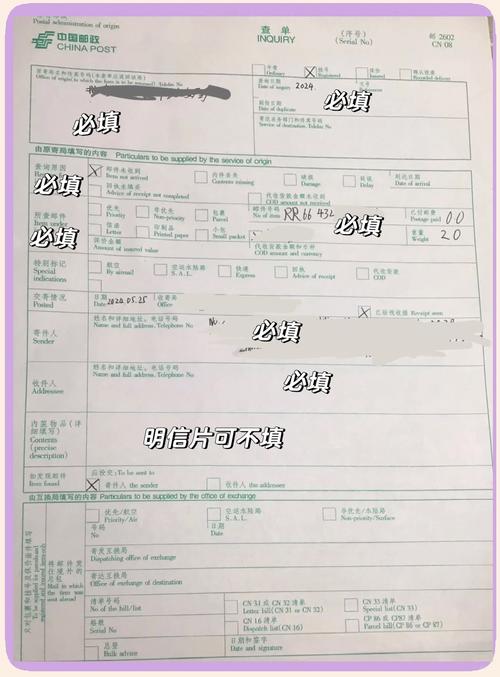 Postal administration of origin
中国邮政
CHINA POST
查 单
INQUIRY
(序号)
(Serial No)
邮 2602
CN 08
Ordinary
挂号
Registered
保价
Insured
Recorded delivery
查询日期
Date of inquiry 2024.
必填
Date of duplicate
Service of destination. Telefax No
必填
由原寄局填写的内容 Particulars to be supplied by the service of origin
查询原因
邮件未收到
Item not arrived
内件丢失
Contents missing
损坏
Damage
延误
Delay
到达日期
Date of arrival
必填
回执未填妥
Advice of receipt not completed
代收货款金额未收到
COD amount not received
所查邮件
Item under
优先
Priority
非优先
Non-priority
包裹
Parcel
邮件号码
No of item RR 66 432
必填
已付邮费
Postage paid 00
必填
信函
Letter
印刷品
Printed paper
小包
Small packet
重量
Weight 20
保价金额
Amount of insured value
代收货款金额和币种
COD amount and currency
特别标记
Special indications
航空
By airmail
空运水陆路
S.A.L.
快递
Express
回执
Advice of receipt
代收货款
COD
交寄情况
Posted
日期
Date 2024.05.25
收寄局
Office
已验看收据 Receipt seen
寄件人
Sender
姓名和详细地址,电话号码
Name and full address. Telephone No
必填
收件人
Addressee
姓名和详细地址,电话号码
Name and full address. Telephone No
必填
内装物品(详细填写)
Contents
(precise description)
明信片可不填
如发现邮件
Item found
应投交:To be sent to
寄件人 the sender
收件人 the addressee
由互换局填写的内容 Particulars to be supplied by the office of exchange
将邮件发往境外的总包
Mail in which the item was sent abroad
优先/航空
Priority/Air
空运水陆路
S.A.L.
非优先/水陆路
Non-priority/Surface
号码
No
日期
Date
寄发互换局
Dispatching office of exchange
寄达互换局
Office of exchange of destination
清单号码
No of the bill/list
CN 31 或 CN 32 清单
Letter bill(CN 31 or CN 32)
CN 33 清单
Special list(CN 33)
格数
Serial No
CN 16 清单
Dispatch list(CN 16)
CP 86 或 CP87 清单
Parcel bill(CP 86 or CP 87)
总登
Bulk advice
日期和签字
Date and signature